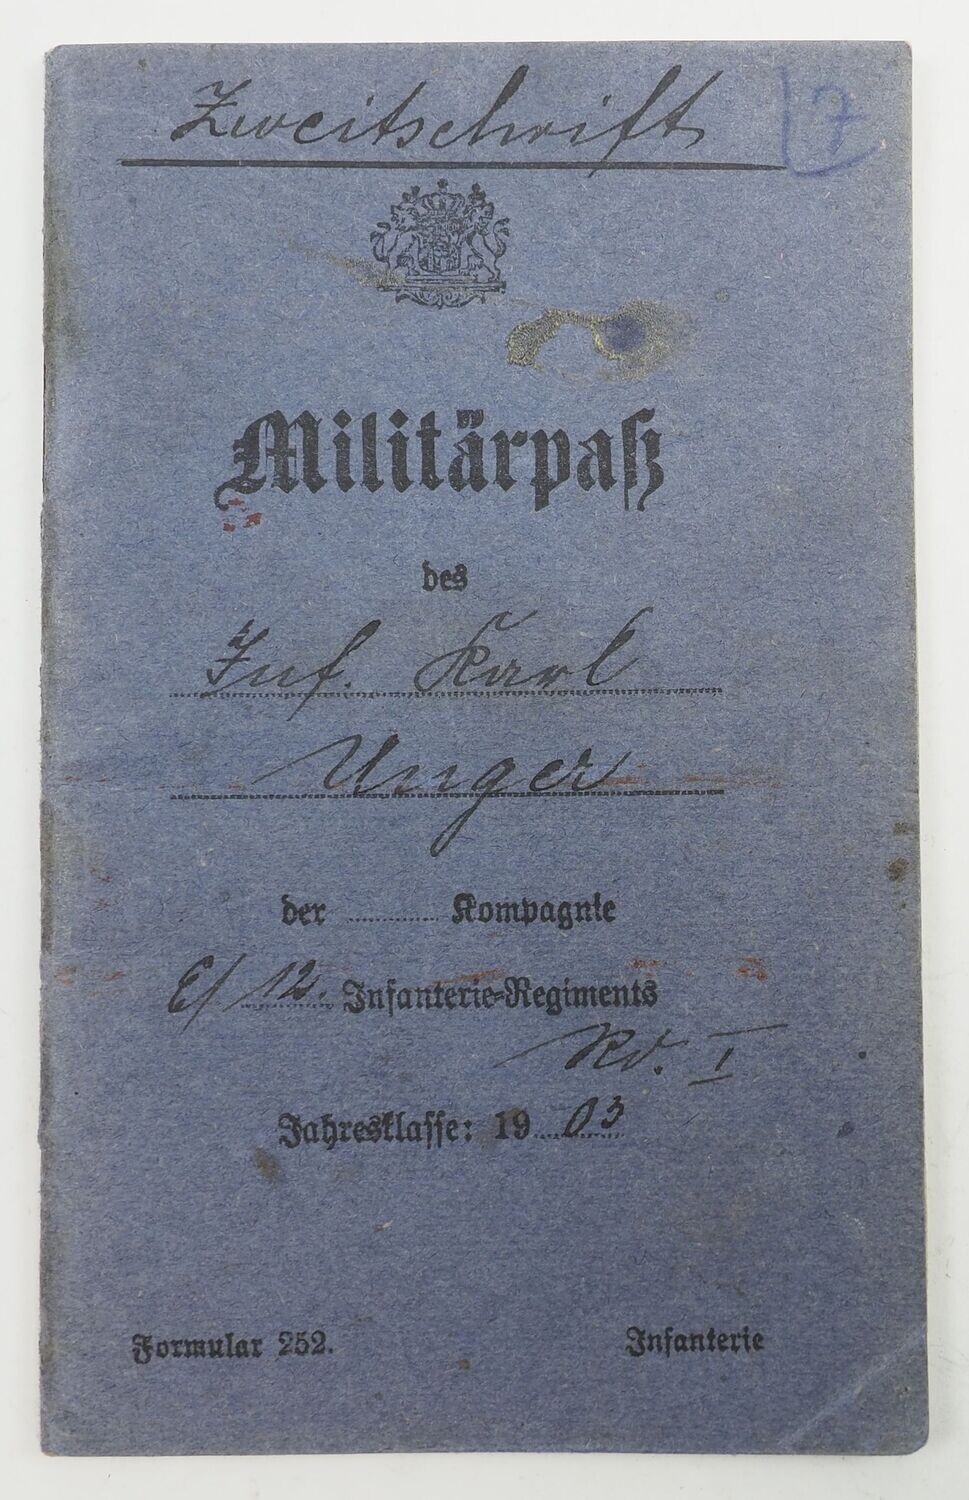 Zweitschrift
7
Militärpaß
des
Inf. Karl
Unger
der ........ Kompagnie
E/ 12. Infanterie-Regiments
Jahresklasse: 1903
Formular 252. Infanterie